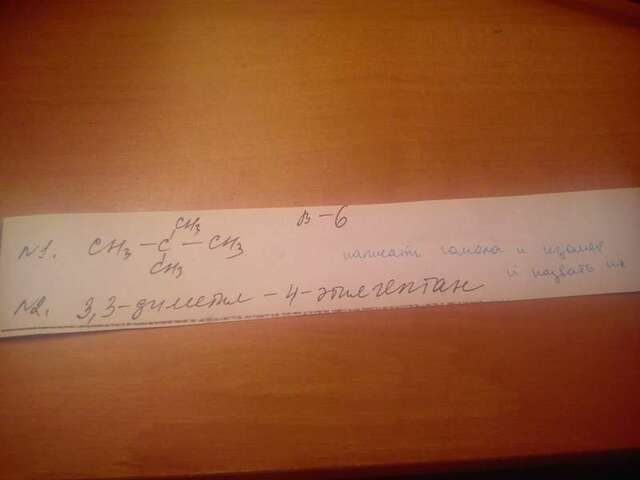 В-6
CH3
№1. CH3 – C – CH3
CH3
написать гомолог и изомер
и назвать их
№2. 3,3-диметил-4-этилгептан